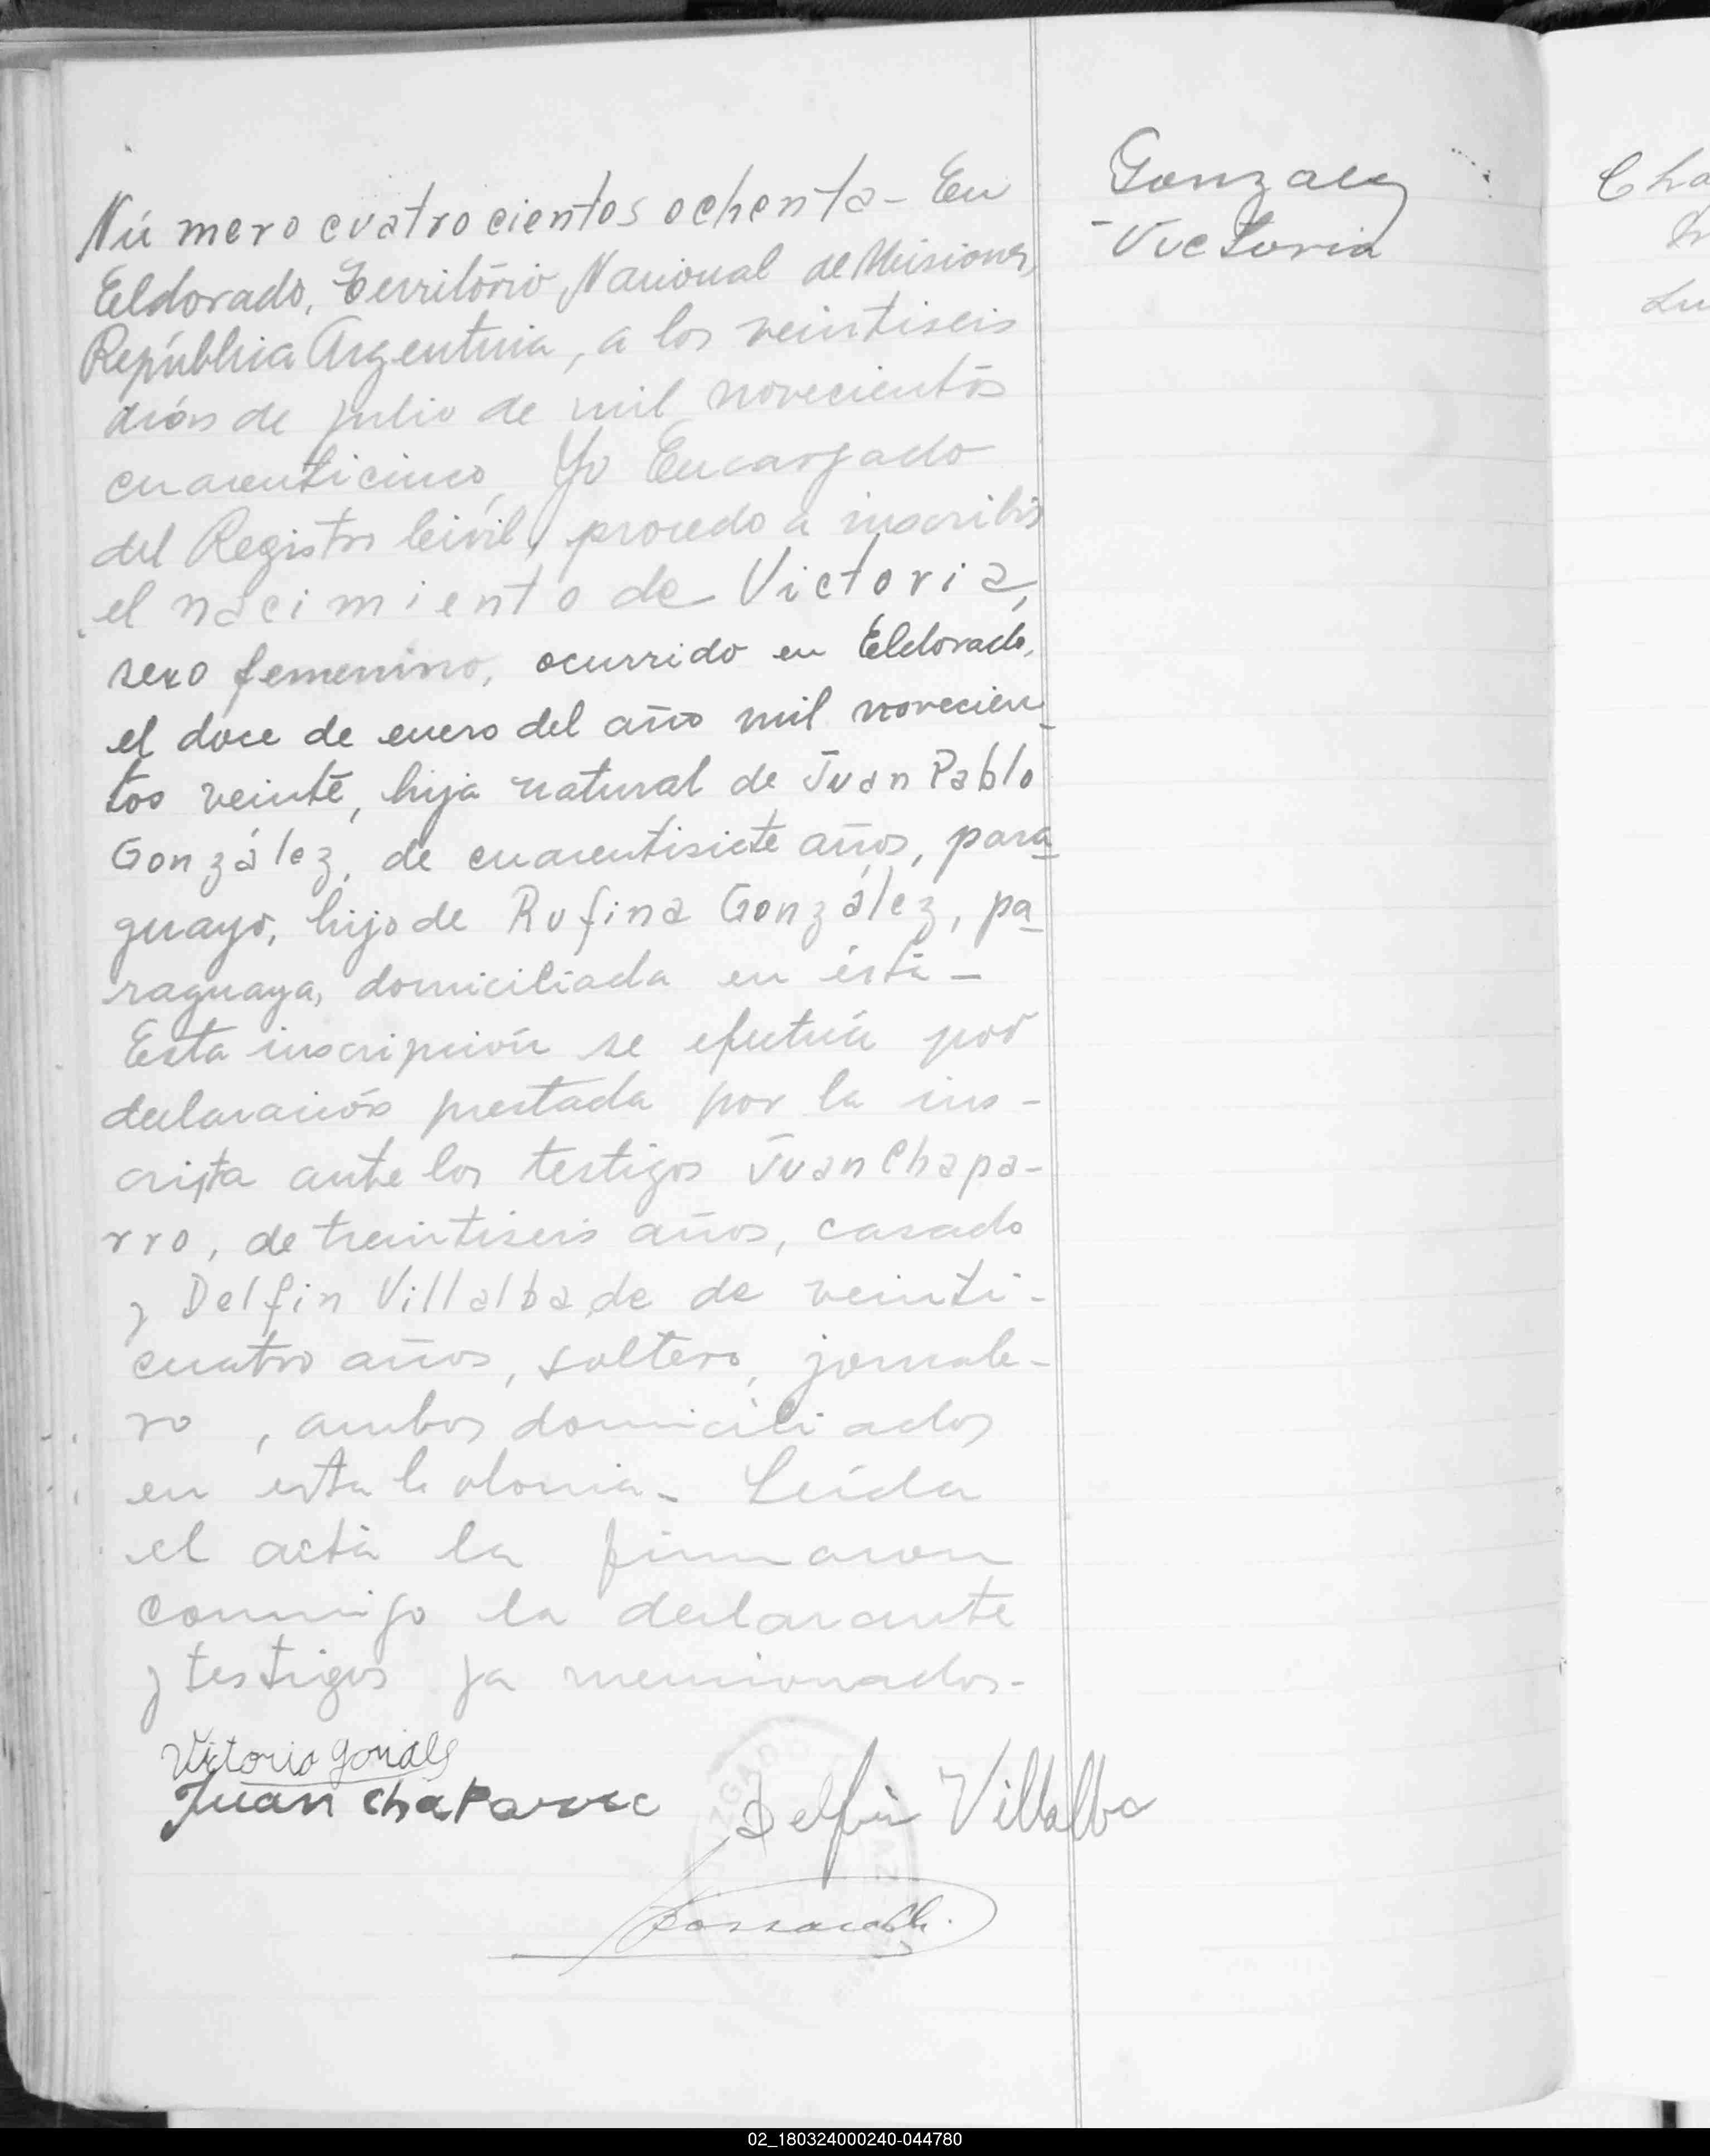 Número cuatrocientos ochenta - En
Eldorado, Território Nacional de Misiones,
República Argentina, a los veintiseis
dias de julio de mil novecientos
cuarenticinco, Yo Encargado
del Registro Civil, procedo a inscribir
el nacimiento de Victoria,
sexo femenino, ocurrido en Eldorado,
el doce de enero del año mil novecien-
tos veinte, hija natural de Juan Pablo
González, de cuarentisiete años, para-
guayo, hijo de Rufina González, pa-
raguaya, domiciliada en ésta -
Esta inscripción se efectúa por
declaración prestada por la ins-
cripta ante los testigos Juan Chapa-
rro, de treintiseis años, casado
y Delfin Villalba, de de veinti-
cuatro años, soltero, jornale-
ro, ambos domiciliados
en esta Colonia - Leída
el acta la firmaron
conmigo la declarante
y testigos ya mencionados -
Victoria Gonzalez
Juan Chaparro Delfin Villalba
Gonzalez
- Victoria
Cha
Lu
02_180324000240-044780